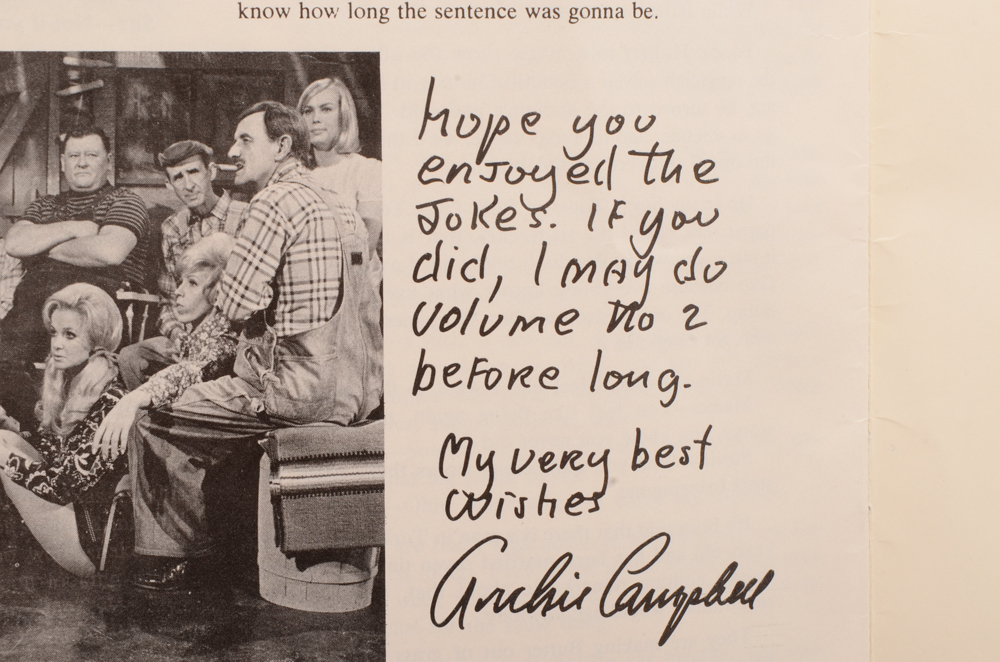 know how long the sentence was gonna be.
Hope you
enjoyed the
Jokes. If you
did, I may do
volume No 2
before long.
My very best
wishes
Archie Campbell